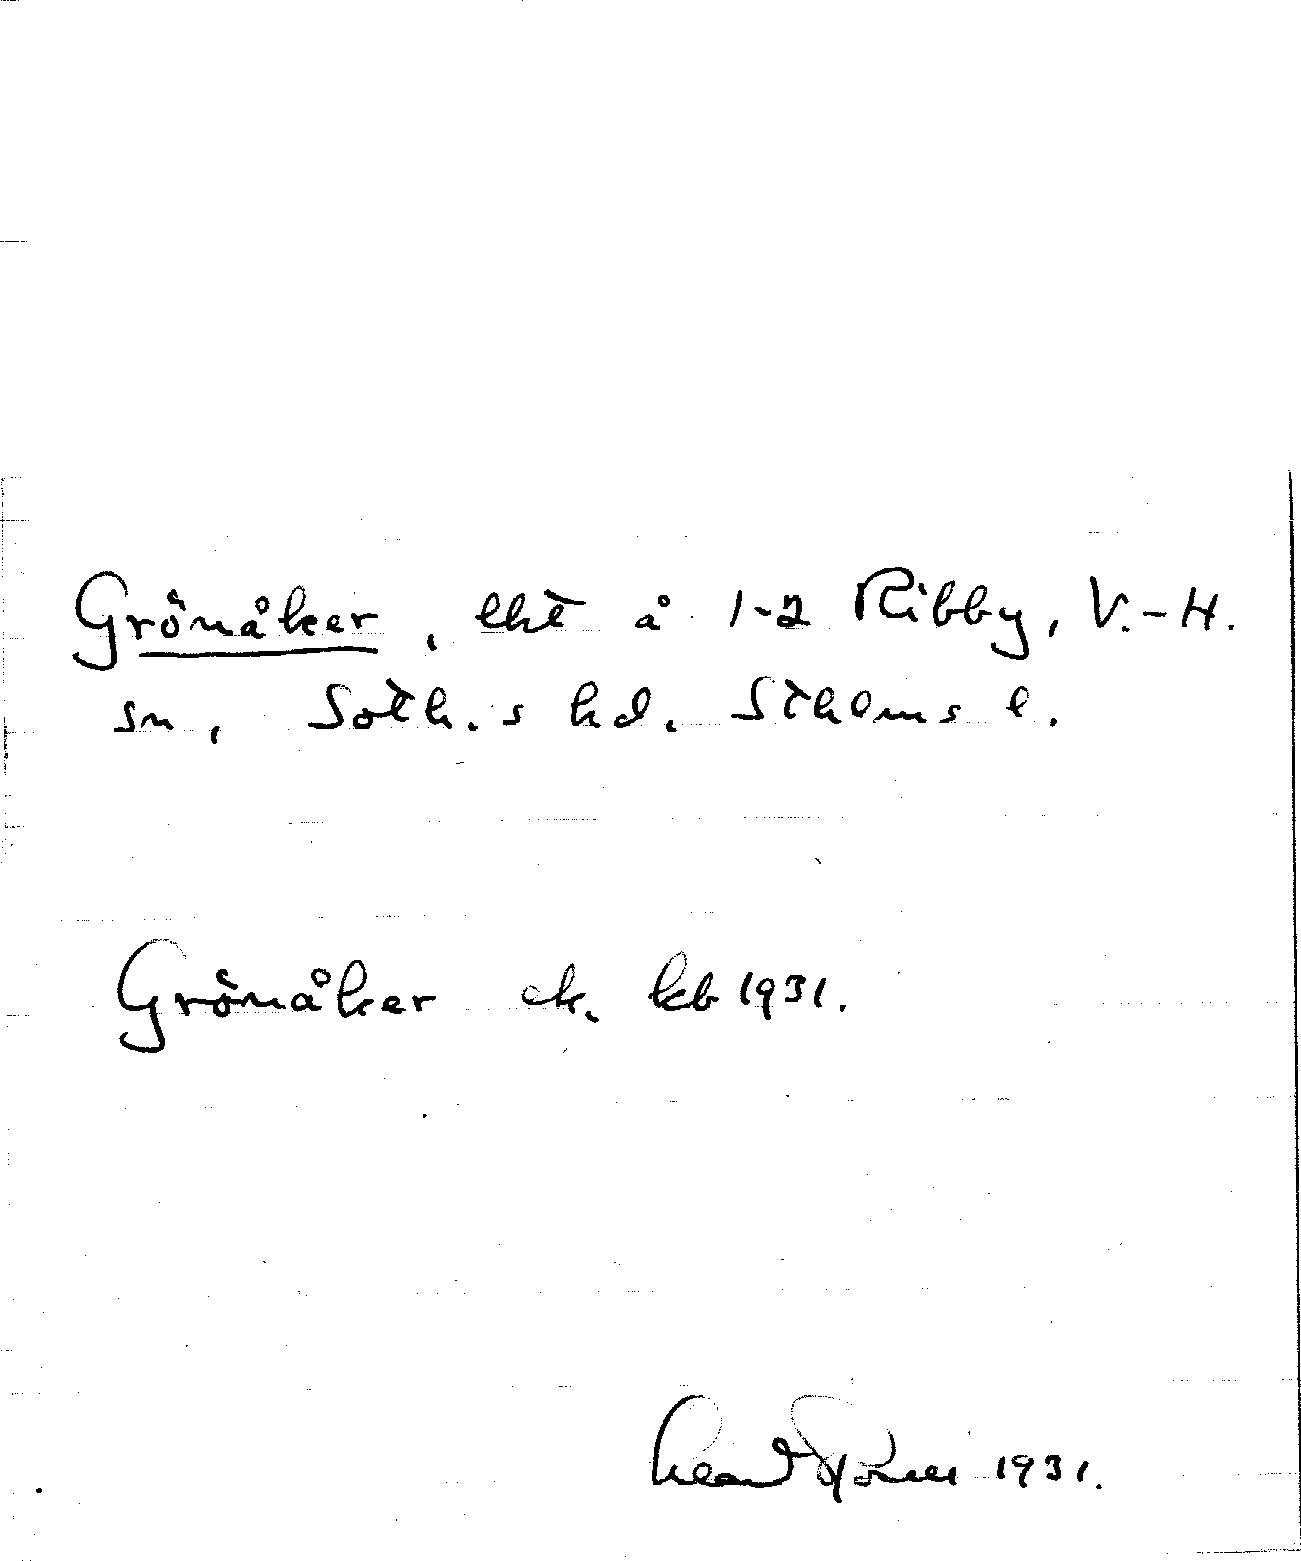 Grönåker, lht å 1-2 Ribby, V.-H.
sn, Soth.s hd. Sthlms l.
Grönåker ek. kb 1931.
1931.